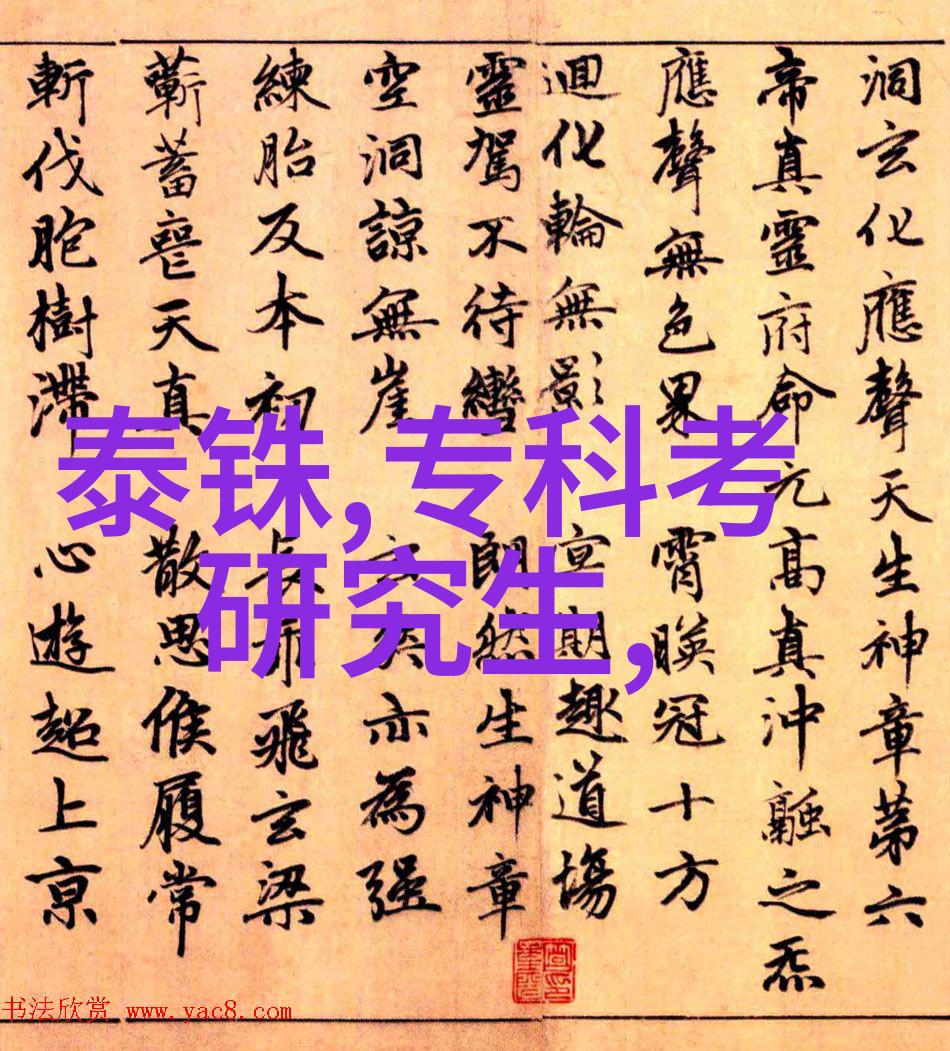 洞玄化應聲天生神章第六
帝真靈府命元高真沖融之炁
應聲無色界 霄暎冠十方
迴化輪無影 期趣道場
靈駕不待轡 朗然生神章
空洞諒無崖 玄爽亦為强
練胎反本初 長乘飛玄梁
蘄蓄喪天真 散思候履常
斬伐胞樹滯 心遊超上京
泰铢,专科考
研究生,
书法欣赏 www.yac8.com